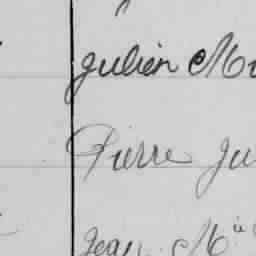 Julien M
Pierre Ju
Jean Mie